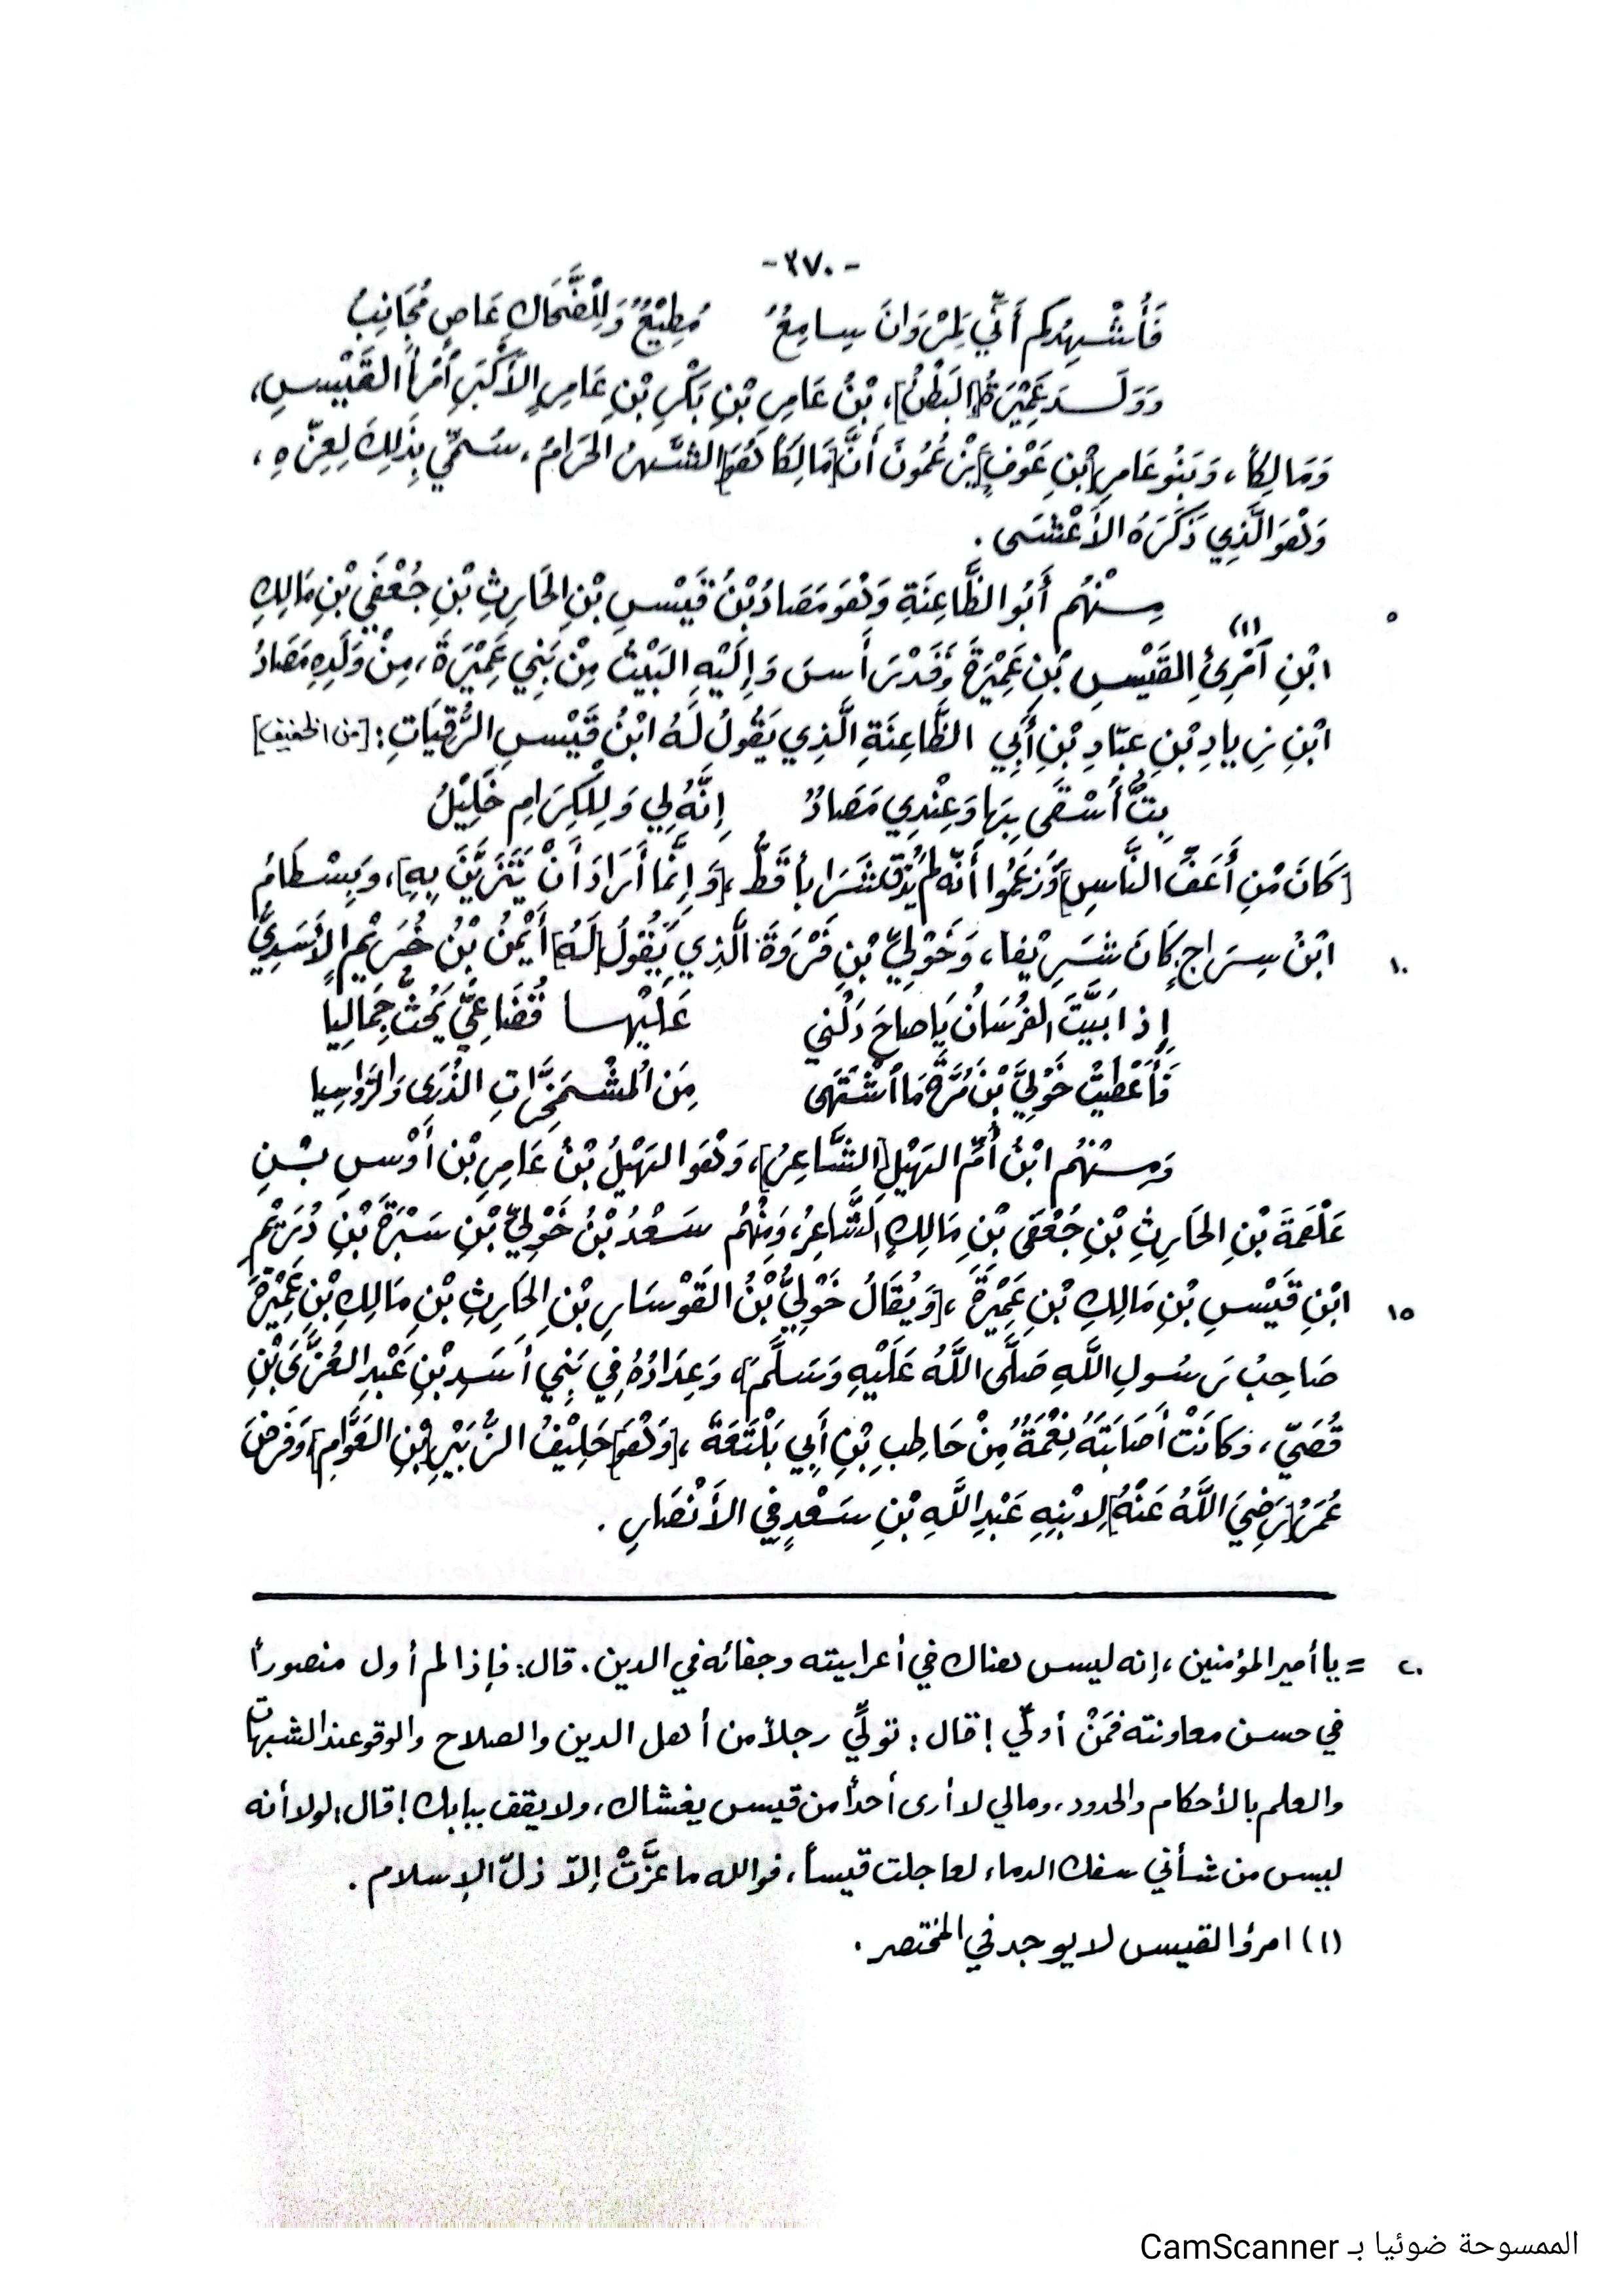 -٣٧٠-
فَأُشْهِدُكم أَنِّي لِمَرْوَانَ سامِعُ مُطِيْعٌ وَلِلْضَّحَاكِ عَاصٍ مُجَانِبُ
وَوَلَـدَ عَمِيْرَةُ [البَطْنُ]، بْنُ عَامِرِ بْنِ بَكْرِ بْنِ عَامِرٍ الأَكْبَرِ أمْرأَ القَيْسِ،
وَمَالِكاً، وَبَنُو عَامِرِ [بْنِ عَوْفٍ] يَزْعُمُونَ أَنَّ [مَالِكَاً هُوَ] الشَّهرُ الحَرَامُ، سُمِّي بِذَلِكَ لِعِزِّهِ،
وَهُوَ الَّذِي ذَكَرَهُ الأَعْشَى .
٥ مِـنْهُم أَبُو الظَّاعِنَةِ وَهُوَ مَصَادُ بْنُ قَيْسِ بْنِ الحَارِثِ بْنِ جُعْفَي بْنِ مَالِكِ
ابْنِ آمْرِئِ القَيْسِ (١) بْنِ عَمِيْرَةَ وَقَدْ رَأَسَ وَإِلَيْهِ البَيْتُ مِنْ بَنِي عَمِيْرَةَ، مِنْ وَلَدِهِ مَصَادُ
ابْنِ زِيادِ بْنِ عبّادِ بْنِ أَبِي الظَّاعِنَةِ الَّذِي يَقُولُ لَهُ ابْنُ قَيْسِ الرُّقيَاتِ: [من الخفيف]
بِتُّ أُسْقَى بِهَا وَعِنْدِي مَصَادٌ إِنَّهُ لِي وَلِلْكِرَامِ خَلِيْلُ
[كَانَ مْنِ أَعَفِّ النَّاسِ] وَزَعَمُوا أَنَّه لم يُذق شَرَاباً قَطُّ، [وَإِنَّمَا أَرَادَ أَنْ يَتَزَيَّنَ بِهِ]، وَبِسْطَامُ
١٠ ابْنُ سِرَاجٍ كَانَ شَرِيْفا، وَخَوْلِيّ بْنِ فَرْوَةَ الَّذِي يَقُولُ [لَهُ] أَيْمنُ بْنُ خُرَيْمٍ الأَسَدِيُّ
إِذا بَيَّتَ الفُرْسَانُ يَا صاحَ دَلَّني عَلَيْهـا قُضَاعِيٌّ يَحُثُّ جِمَالِيا
فَأَعْطَيْتُ خَوْلِيَّ بْنَ مُرَّةَ مَا اشْتَهَى مِنَ الْمُشْمَخِرَّاتِ الذُرَى وَالرَّواسِيا
وَمِـنْهُم ابْنُ أُمِّ النَهْيلِ [الشَّاعِرُ]، وَهُوَ النَهْيلُ بْنُ عَامِرِ بْنِ أَوْسِ بْـنِ
عَلْقَمَةَ بْنِ الحَارِثِ بْنِ جُعْفَى بْنِ مَالِكٍ الشَّاعِرُ، وَمِنْهُم سَعْدُ بْنُ خَوْلِيّ بْنِ سَبْرَةَ بْنِ دُرَيْمِ
١٥ ابْنِ قَيْسِ بْنِ مَالِكِ بْنِ عَمِيْرَةَ، [وَيُقَالُ خَوْلِيُّ بْنُ القَوْسَارِ بْنِ الحَارِثِ بْنِ مَالِكِ بْنِ عَمِيْرَةَ
صَاحِبُ رَسُولِ اللَّهِ صَلَّى اللَّهُ عَلَيْهِ وَسَلَّمَ]، وَعِدَادُهُ فِي بَنِي أَسَدِ بْنِ عَبْدِ العُزَّى بْنِ
قُصَيّ، وَكَانَتْ أَصَابَتَهُ نِعْمَةٌ مِنْ حَاطِبِ بْنِ أَبِي بَلْتَعَةَ، [وَهُوَ] حَلِيْفُ الزُّبَيْرِ [بْنِ العَوَّامِ] وَفَرضَ
عُمَرُ [رَضِيَ اللَّهُ عَنْهُ] لِابْنِهِ عَبْدِ اللَّهِ بْنِ سَعْدٍ فِي الأَنْصَارِ .
٢٠ = يا أمير المؤمنين، إنه ليس هناك في أعرابيته وجفائه في الدين. قال: فإذا لم أول منصوراً
في حسن معاونته فمَنْ أولّي! قال: تولِّي رجلاً من أهل الدين والصلاح والوقوعند الشبهات
والعلم بالأحكام والحدود، ومالي لا أرى أحداً من قيس يغشاك، ولا يقف ببابك! قال: لولا أنه
ليس من شأني سفك الدماء لعاجلت قيساً، فوالله ما عَزَّتْ إلّا ذلّ الإسلام .
(١) امرؤ القيس لا يوجد في المختصر .
الممسوحة ضوئيا بـ CamScanner